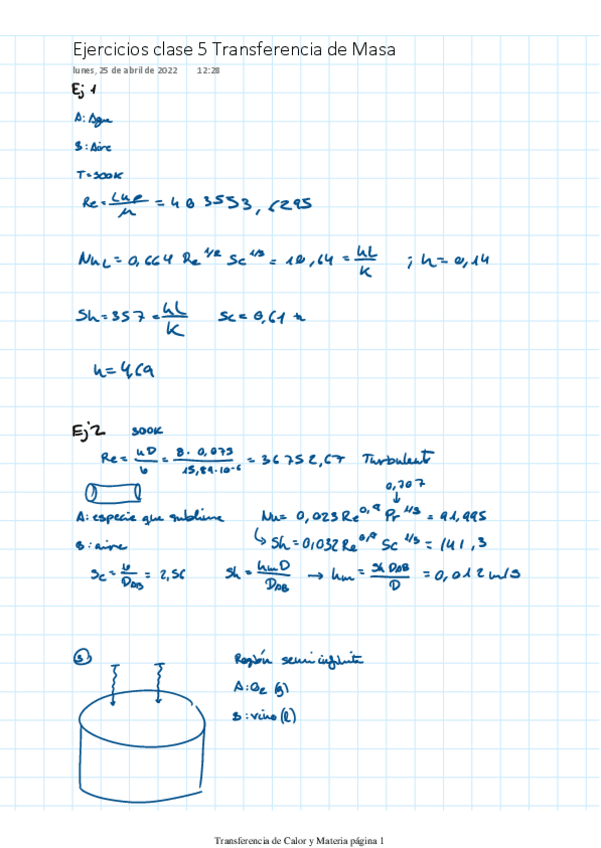 Ejercicios clase 5 Transferencia de Masa
lunes, 25 de abril de 2022 12:28
Ej 1
A: Agua
B: Aire
T = 300K
Re = Luρ/μ = 403553,6295
NuL = 0,664 Re^1/2 Sc^1/3 = 10,64 = hL/K ; h = 0,14
Sh = 357 = hL/K Sc = 0,61
h = 4,69
Ej 2 300K
Re = uD/υ = 8 · 0,073/15,89·10^-6 = 36752,67 Turbulent
0,707
A: especie que sublime Nu = 0,023 Re^0,8 Pr^1/3 = 91,995
B: aire ↳ Sh = 0,032 Re^0,8 Sc^1/3 = 141,3
Sc = υ/DAB = 2,56 Sh = hmD/DAB → hm = Sh DAB/D = 0,012 m/s
③ Región semi infinita
A: O2 (g)
B: vino (l)
Transferencia de Calor y Materia página 1